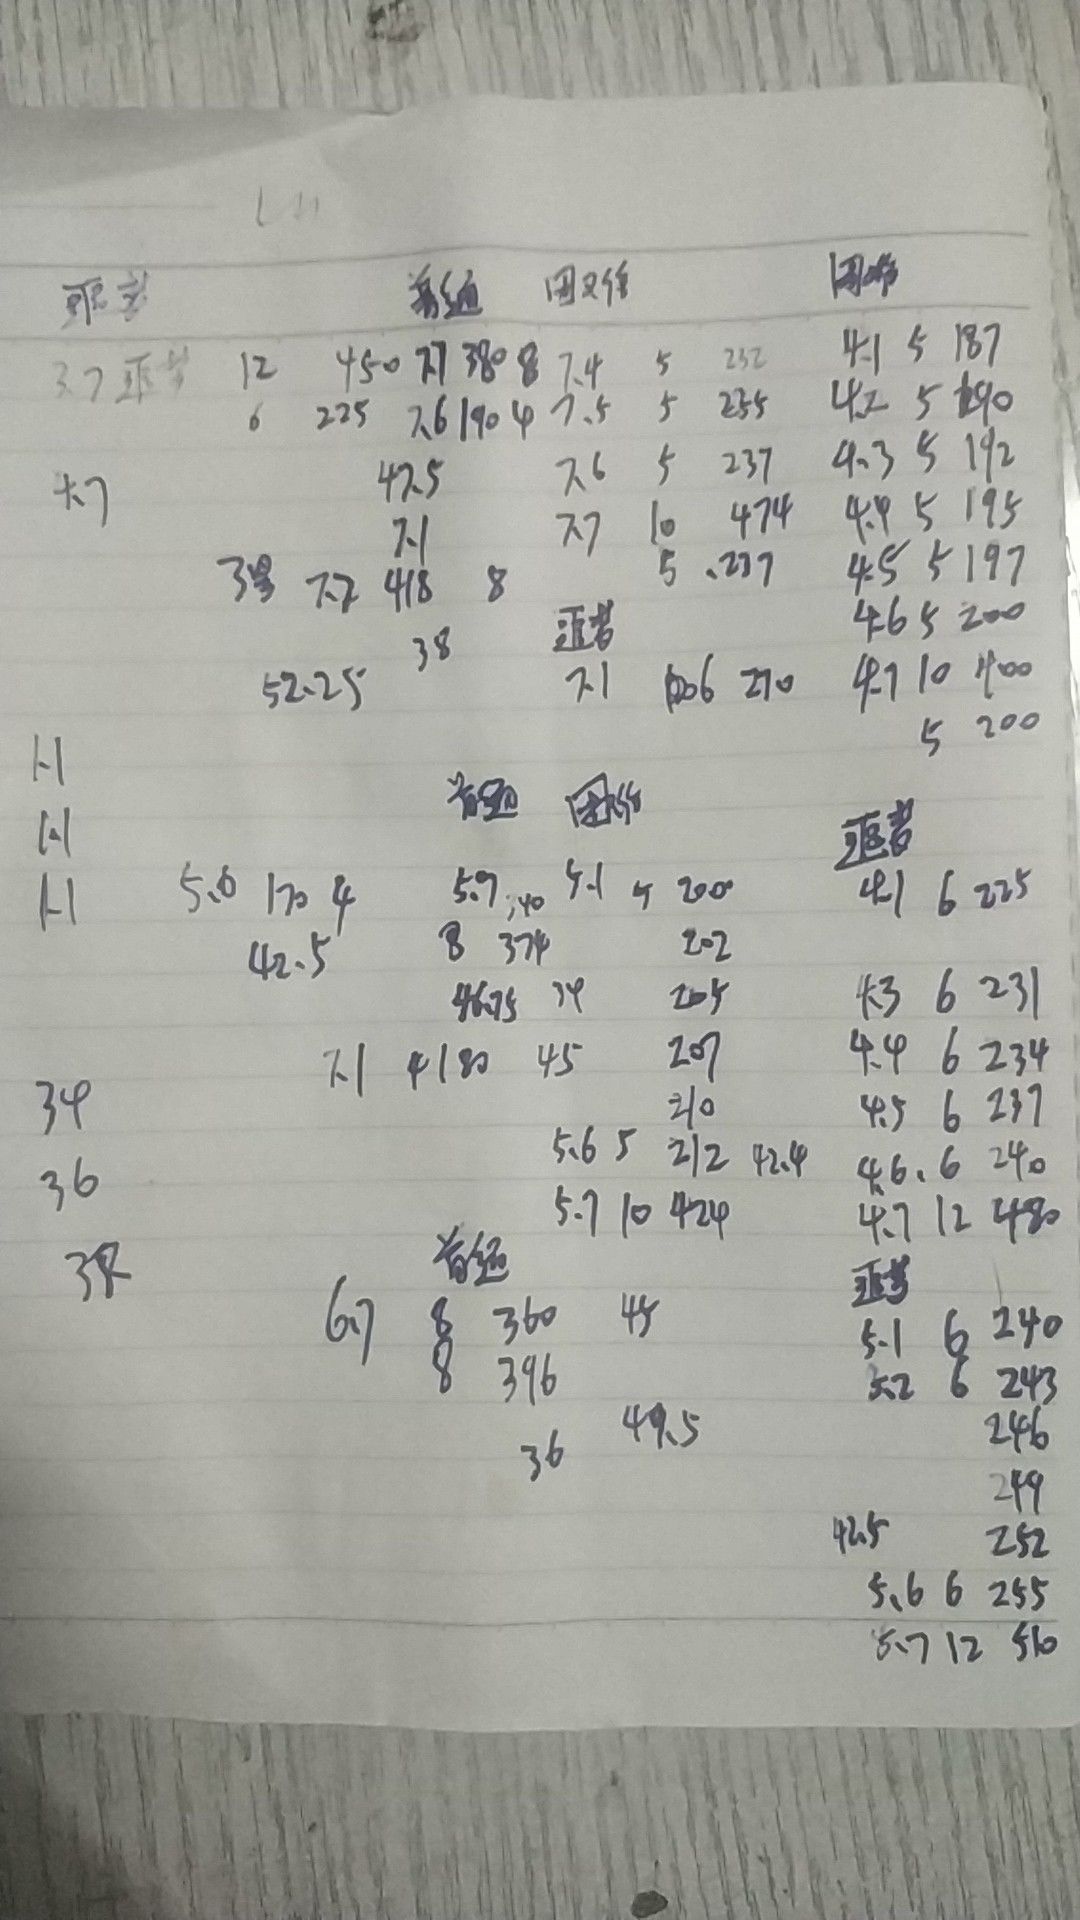 普通
3.7 12 450 7.7 380 8 7.4 5 232 4.1 5 187
6 225 7.6 190 4 7.5 5 235 4.2 5 190
4.7 47.5 7.6 5 237 4.3 5 192
7.1 7.7 10 474 4.4 5 195
7.7 418 8 5 .237 4.5 5 197
38 4.6 5 200
52.25 7.1 6 270 4.7 10 400
5 200
1.1
普通
1.1
1.1 5.6 170 4 5.7 5.1 5 200 4.1 6 225
42.5 8 374 202
46.75 34 205 4.3 6 231
7.1 4180 45 207 4.4 6 234
34 210 4.5 6 237
36 5.6 5 212 42.4 4.6 . 6 240
5.7 10 424 4.7 12 480
普通
6.7 8 360 45 5.1 6 240
8 396 5.2 6 243
36 49.5 246
249
42.5 252
5.6 6 255
5.7 12 510